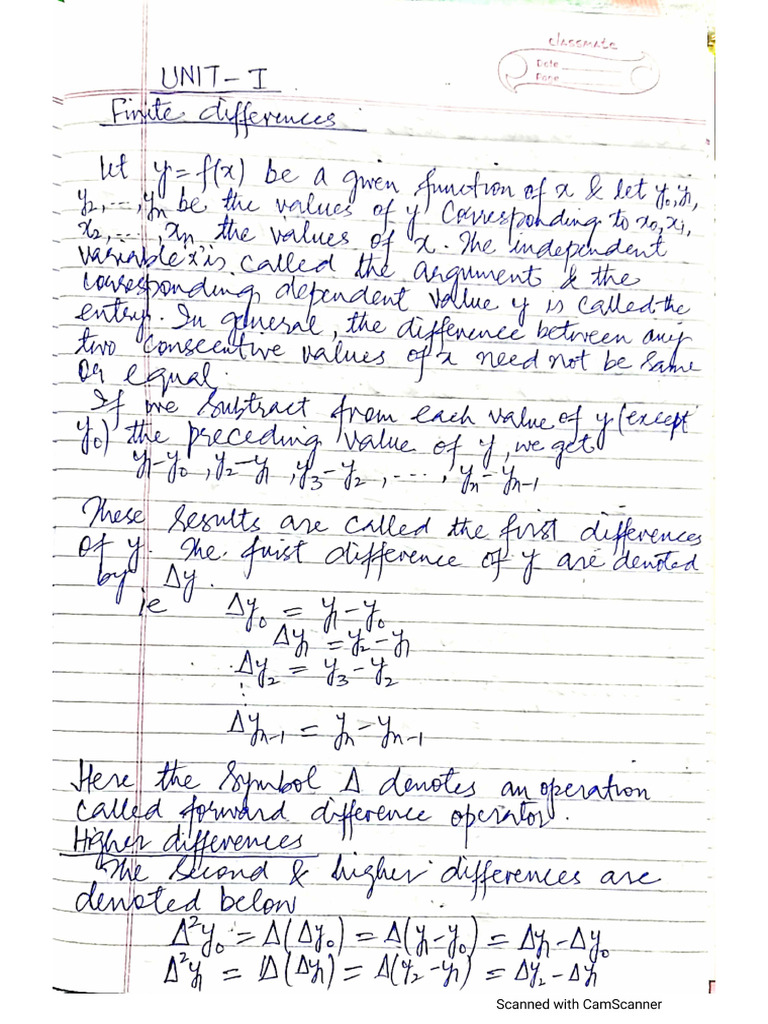 classmate
Date
Page
UNIT-I
Finite differences
let y=f(x) be a given function of x & let y₀, y₁,
y₂,...,yₙ be the values of y corresponding to x₀, x₁,
x₂,...,xₙ the values of x. The independent
variable 'x' is called the argument & the
corresponding dependent value y is called the
entry. In general, the difference between any
two consecutive values of x need not be same
or equal.
If we subtract from each value of y (except
y₀) the preceding value of y, we get
y₁-y₀, y₂-y₁, y₃-y₂, ...., yₙ-yₙ₋₁
These results are called the first differences
of y. The first difference of y are denoted
by Δy.
ie Δy₀ = y₁-y₀
Δy₁ = y₂-y₁
Δy₂ = y₃-y₂
⋮
Δyₙ₋₁ = yₙ-yₙ₋₁
Here the symbol Δ denotes an operation
called forward difference operator.
Higher differences
The second & higher differences are
denoted below
Δ²y₀ = Δ(Δy₀) = Δ(y₁-y₀) = Δy₁-Δy₀
Δ²y₁ = Δ(Δy₁) = Δ(y₂-y₁) = Δy₂-Δy₁
Scanned with CamScanner